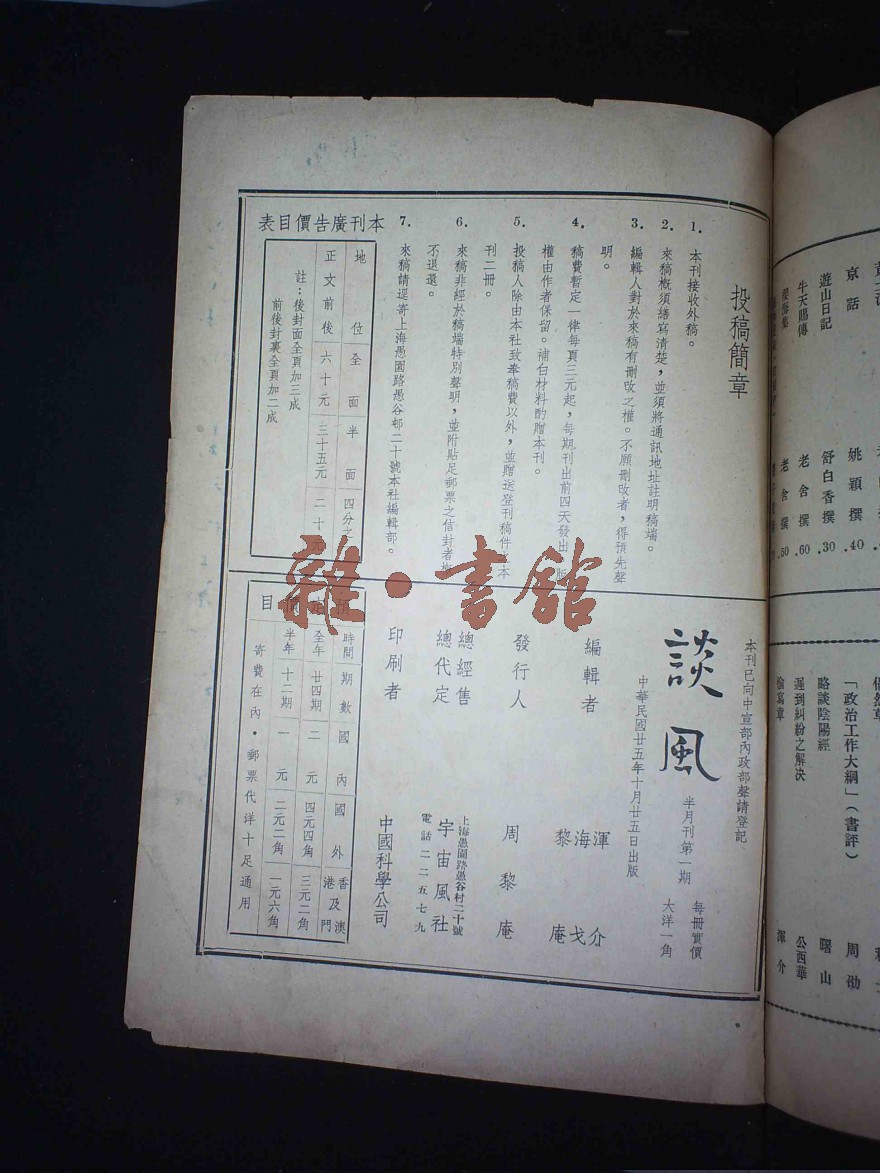 投稿簡章
1. 本刊接收外稿。
2. 來稿概須繕寫清楚，並須將通訊地址註明稿端。
3. 編輯人對於來稿有刪改之權。不願刪改者，得預先聲
明。
4. 稿費暫定一律每頁三元起，每期刊出前四天發出
權由作者保留。補白材料酌贈本刊。
5. 投稿人除由本社致奉稿費以外，並贈送登刊稿件
本
刊二冊。
6. 來稿非經於稿端特別聲明，並附貼足郵票之信封者
不退還。
7. 來稿請逕寄上海愚園路愚谷邨二十號本社編輯部。
本刊廣告價目表
地位 全面 半面 四分之
正文前後 六十元 三十五元 二十元
註：後封面全頁加三成
前後封裏全頁加二成
本刊已向中宣部內政部聲請登記
談風
半月刊第一期
每冊實價
大洋一角
中華民國廿五年十月廿五日出版
編輯者
渾介
海戈
黎庵
發行人 周黎庵
總經售
總代定
上海愚園路愚谷村二十號
宇宙風社
電話二二五七九
印刷者 中國科學公司
預定價目
時間 期數 國內 國外 香港及澳門
全年 廿四期 二元 四元四角 三元二角
半年 十二期 一元 二元二角 一元六角
寄費在內·郵票代洋十足通用
雜·書館
京話 姚穎撰 .40
遊山日記 舒白香撰 .30
牛天賜傳 老舍撰 .60
櫻海集 老舍撰 .50
「政治工作大綱」（書評） 周劭
略談陰陽經 曙山
遲到糾紛之解決 公西華
渾介